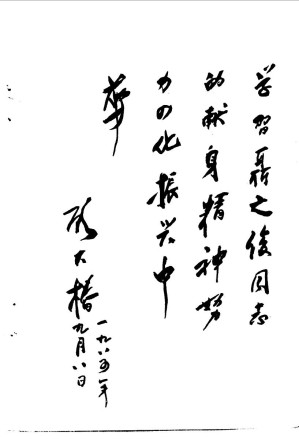 学習聂之俊同志
的献身精神努
力四化振兴中
華
大椿
一九八五年
九月八日